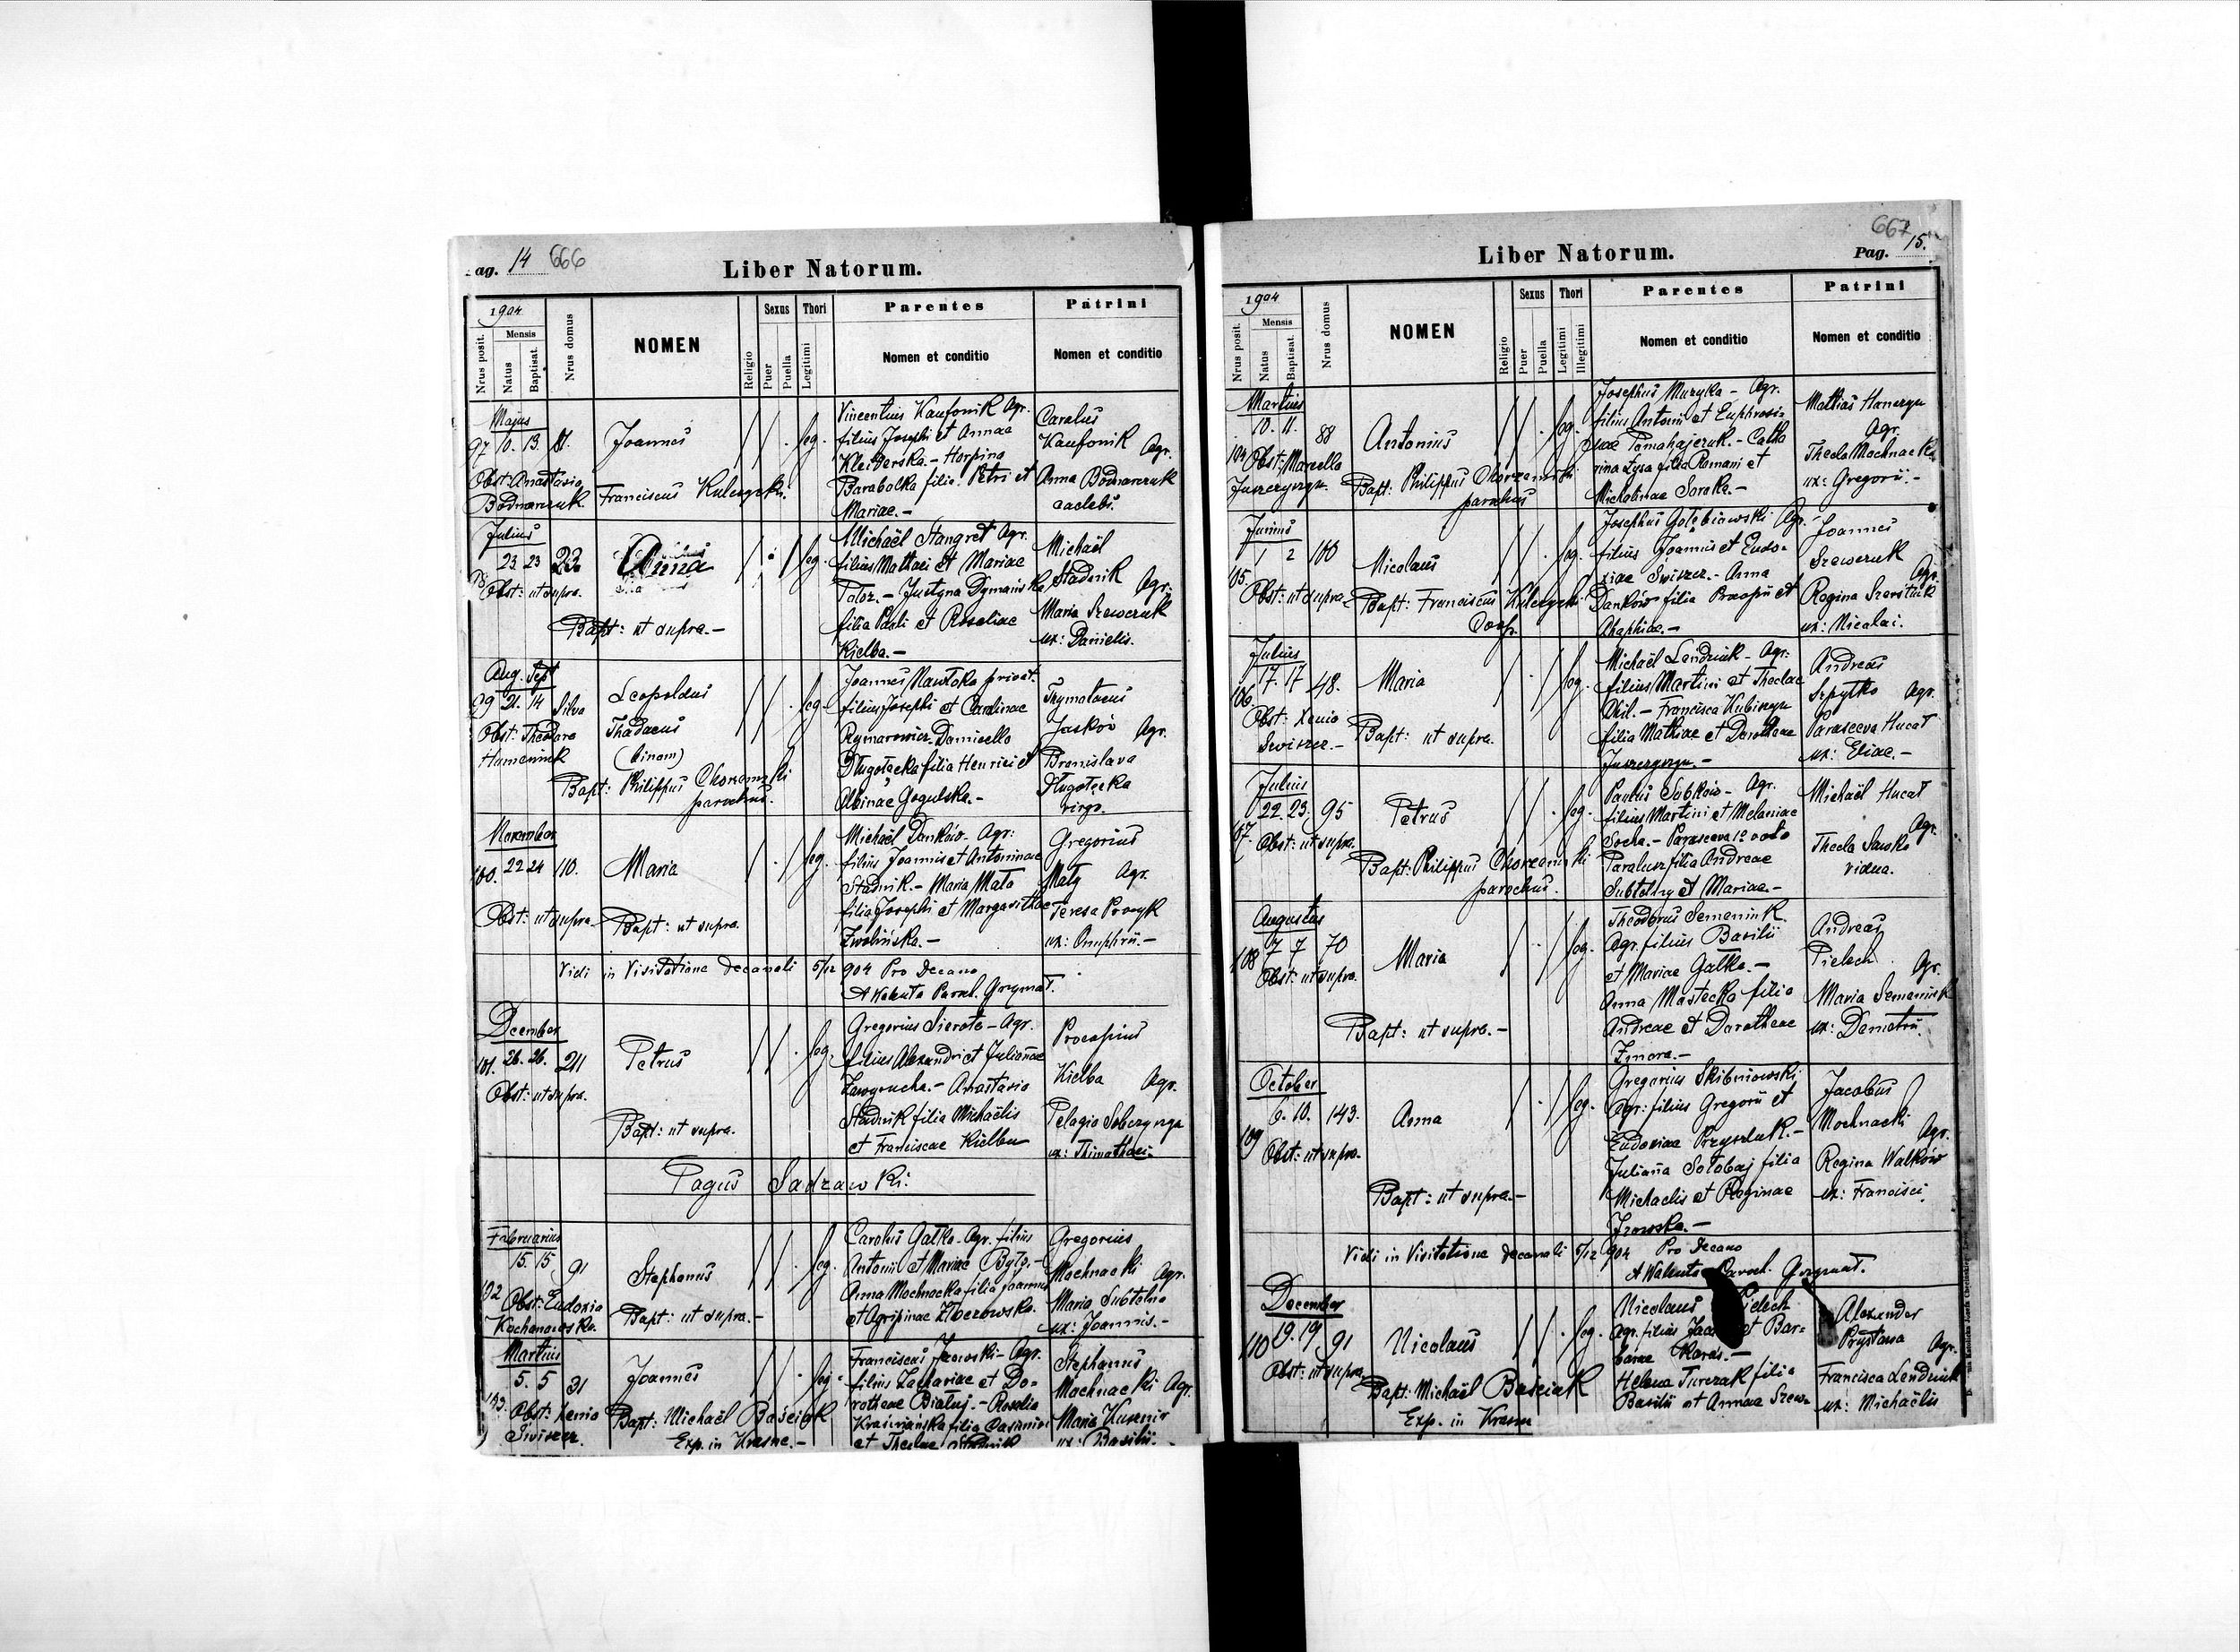 ag. 14 666
Liber Natorum.
1904
Nrus posit.
Mensis
Natus
Baptisat.
Nrus domus
NOMEN
Religio
Sexus
Puer
Puella
Thori
Legitimi
Parentes
Nomen et conditio
Patrini
Nomen et conditio
Majus
97 10. 13.
Joannes
leg.
Obst: Anastasia
Bodnarczuk
Franciscus Kuleczycki
Vincentius Kaufonik Agr.
filius Josephi et Annae
Kleiberska. - Horpina
Barabolka filia Petri et
Mariae. -
Carolus
Kaufonik Agr.
Anna Bodnarczuk
caelebs.
Julius
98 23 23 23
Anna
leg.
Obst: ut supra.
Bapt: ut supra. -
Michaël Stangret Agr.
filius Mathaei et Mariae
- Justyna Dymańska
filia Pauli et Rosaliae
Kielba. -
Michaël
Stadnik Agr.
Maria Szewczuk
ux: Danielis.
Aug. Sept
99 21. 14 Silva
Leopoldus
Thadaeus
(binom)
leg
Obst: Theodora
Humeniuk
Bapt: Philippus Chorzemski
parochus.
Joannes Nawłoka privat.
filius Josephi et Carolinae
Rymarowicz. Damicella
Długołęcka filia Henrici et
Albinae Gogulska. -
Tkymotaeus
Jaśków Agr.
Bronislava
Długołęcka
virgo.
November
100. 22 24 110.
Maria
leg.
Obst: ut supra.
Bapt: ut supra.
Michaël Danków - Agr:
filius Joannis et Antoninae
Stadnik. - Maria Mała
filia Josephi et Margarithae
Zwolińska. -
Gregorius
Mały Agr.
Teresa Procyk
ux: Onuphrii. -
Vidi in Visitatione decanali 5/12 904 Pro Decano
A Walenta Paroch. Grzymał.
December
101. 26. 26. 211
Petrus
leg.
Obst: ut supra.
Bapt: ut supra.
Gregorius Sierota - Agr.
filius Alexandri et Julianae
Zawyrucha. - Anastasia
Stadnik filia Michaëlis
et Franciscae Kielba
Procopius
Kielba Agr.
Pelagia Sobczyszyn
ux: Thimothaei.
Pagus Sadzawki.
Februarius
102 15. 15 91
Stephanus
leg.
Obst: Eudoxia
Kochanowska.
Bapt: ut supra. -
Carolus Gałka - Agr. filius
Antonii et Mariae Było. -
Anna Mochnacka filia Joannis
et Agripinae Zborowska.
Gregorius
Mochnacki Agr.
Maria Subtelna
ux: Joannis. -
Martius
103. 5. 5 31
Joannes
leg.
Obst: Xenia
Świszcz.
Bapt: Michaël Baściak
Exp. in Krasne. -
Franciscus Jzowski - Agr.
filius Zachariae et Do-
rotheae Białuj. - Rosalia
Kraśniańska filia Casimiri
et Theclae Stadnik
Stephanus
Mochnacki Agr.
Maria Kusznir
ux: Basilii. -
667
Liber Natorum.
Pag. 15.
1904
Nrus posit.
Mensis
Natus
Baptisat.
Nrus domus
NOMEN
Religio
Sexus
Puer
Puella
Thori
Legitimi
Illegitimi
Parentes
Nomen et conditio
Patrini
Nomen et conditio
Martius
104 10. 11. 88
Antonius
leg.
Obst: Marcella
Juszczyszyn.
Bapt: Philippus Chorzemski
parochus
Josephus Muzyka - Agr.
filius Antonii et Euphrosi-
nae Pomahajczuk. - Catha
rina Łysa filia Romani et
Michalinae Soroka. -
Mathias Hanczyn
Agr.
Thecla Mochnacka
ux: Gregorii. -
Junius
105. 1 2 100
Nicolaus
leg.
Obst: ut supra.
Bapt: Franciscus Kuleczycki
Coop.
Josephus Gołębiowski Agr.
filius Joannis et Eudo-
xiae Świszcz. - Anna
Danków filia Procopii et
Ahaphiae. -
Joannes
Szewczuk
Agr.
Regina Szewczuk
ux: Nicolai.
Julius
106. 17. 17 48.
Maria
leg.
Obst: Xenia
Świszcz. -
Bapt: ut supra.
Michaël Lendziuk - Agr:
filius Martini et Theclae
Okil. - Francisca Kubiszyn
filia Mathiae et Dorotheae
Juszczyszyn. -
Andreas
Szpytko Agr.
Parasceva Hucał
ux: Eliae. -
Julius
107 22. 23. 95
Petrus
leg.
Obst: ut supra.
Bapt: Philippus Chorzemski
parochus.
Paulus Sobków - Agr.
filius Martini et Melaniae
Socha. - Parasceva 1º voto
Paralusz filia Andreae
Subtelny et Mariae. -
Michaël Hucał
Agr.
Thecla Sawka
vidua.
Augustus
108 7 7 70
Maria
leg.
Obst: ut supra.
Bapt: ut supra. -
Theodorus Semeniuk
Agr. filius Basilii
et Mariae Gałka. -
Anna Mastecka filia
Andreae et Dorotheae
Zmora. -
Andreas
Pielech Agr.
Maria Semeniuk
ux: Demetrii.
October
109 6. 10. 143.
Anna
leg.
Obst: ut supra.
Bapt: ut supra. -
Gregorius Skibniowski
Agr: filius Gregorii et
Eudoxiae Przyszluk. -
Juliana Sołobaj filia
Michaelis et Reginae
Jzowska. -
Jacobus
Mochnacki
Agr.
Regina Walków
ux: Francisci.
Vidi in Visitatione decanali 5/12 904 Pro Decano
A Walenta Paroch. Grzymał.
December
110 19. 19 91
Nicolaus
leg.
Obst: ut supra.
Bapt: Michaël Baściak
Exp. in Krasne
Nicolaus Pielech
Agr. filius et Bar-
barae Karaś. -
Helena Turczak filia
Basilii et Annae Szew-
Alexander
Prystasa Agr.
Francisca Lendziuk
ux: Michaëlis